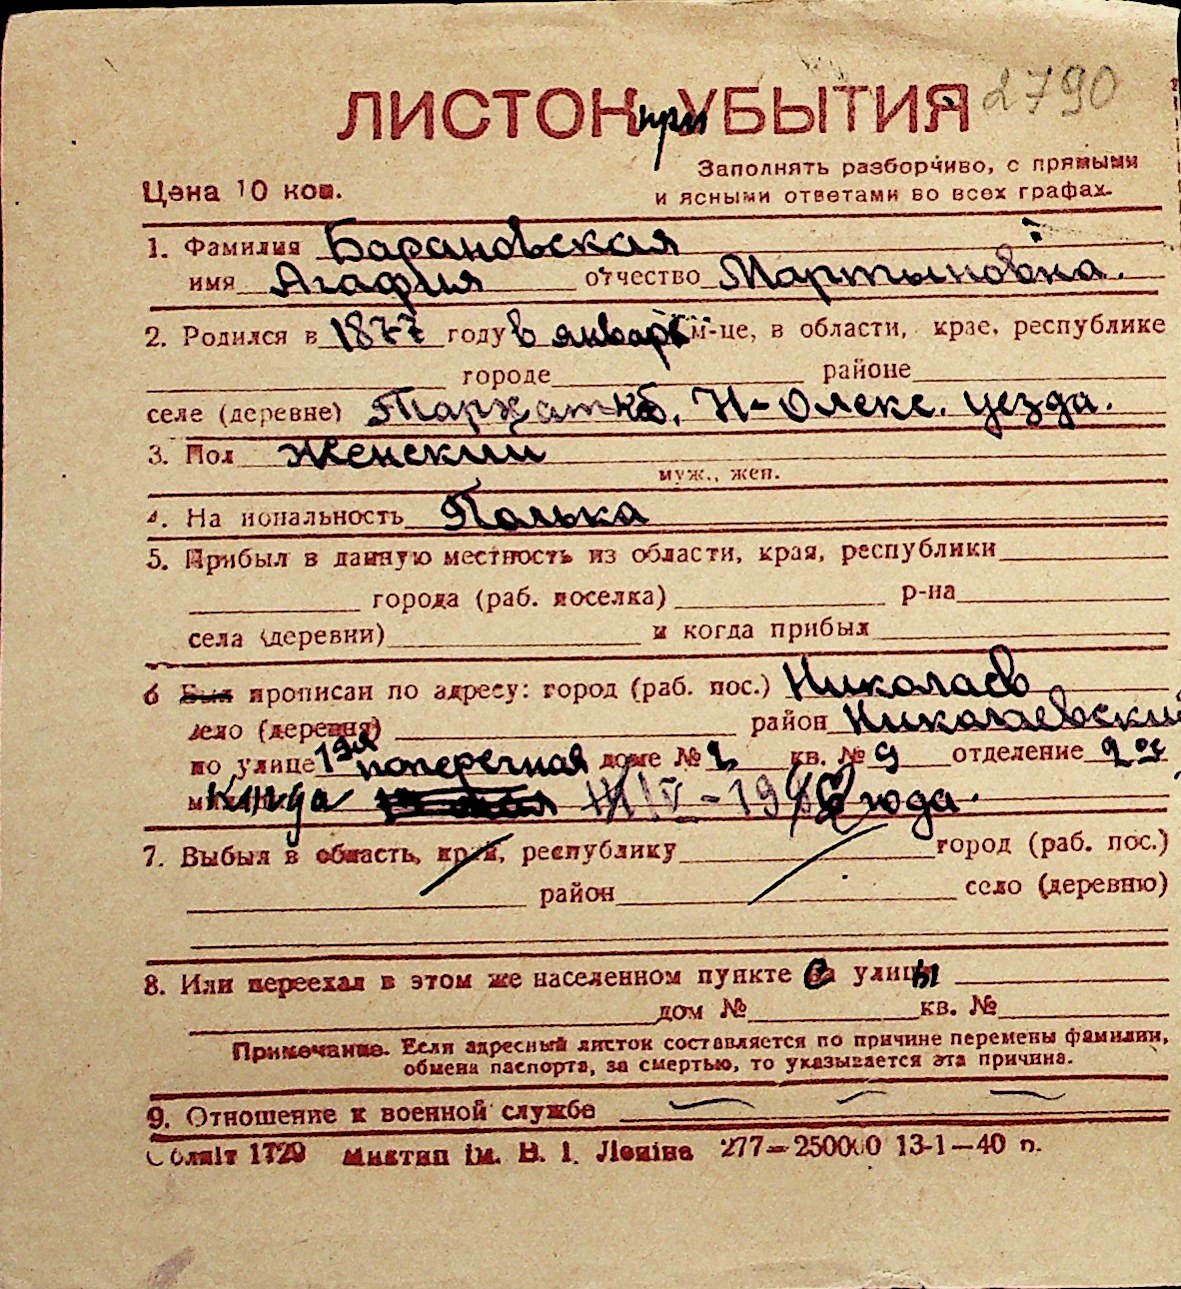 ЛИСТОК при УБЫТИЯ 2790
Заполнять разборчиво, с прямыми
Цена 10 коп. и ясными ответами во всех графах.
1. Фамилия Барановская
имя Агафия отчество Мартыновна.
2. Родился в 1877 году в январе м-це, в области, крае, республике
городе районе
селе (деревне) Н-Олекс. уезда.
3. Пол Женский
муж., жен.
4. На иональность Полька
5. Прибыл в данную местность из области, края, республики
города (раб. поселка) р-на
села (деревни) и когда прибыл
6 Был прописан по адресу: город (раб. пос.) Николаев
село (деревня) район Николаевский
по улице 1ая поперечная доме № 2 кв. № 9 отделение 2ое
Когда IV-1942 года.
7. Выбыл в область, край, республику город (раб. пос.)
район село (деревню)
8. Или переехал в этом же населенном пункте с улицы
дом № кв. №
Примечание. Если адресный листок составляется по причине перемены фамилии,
обмена паспорта, за смертью, то указывается эта причина.
9. Отношение к военной службе
Облліт 1720 Миктип ім. В. І. Леніна 277—250000 13-1—40 р.